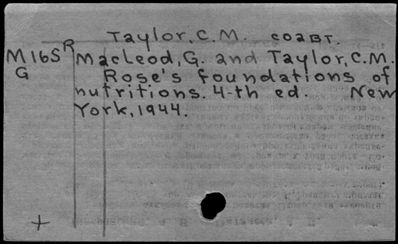 Taylor, C.M. соавт.
M165 R MacLeod, G. and Taylor, C.M.
G Rose's foundations of
nutritions. 4-th ed. New
York, 1944.
+